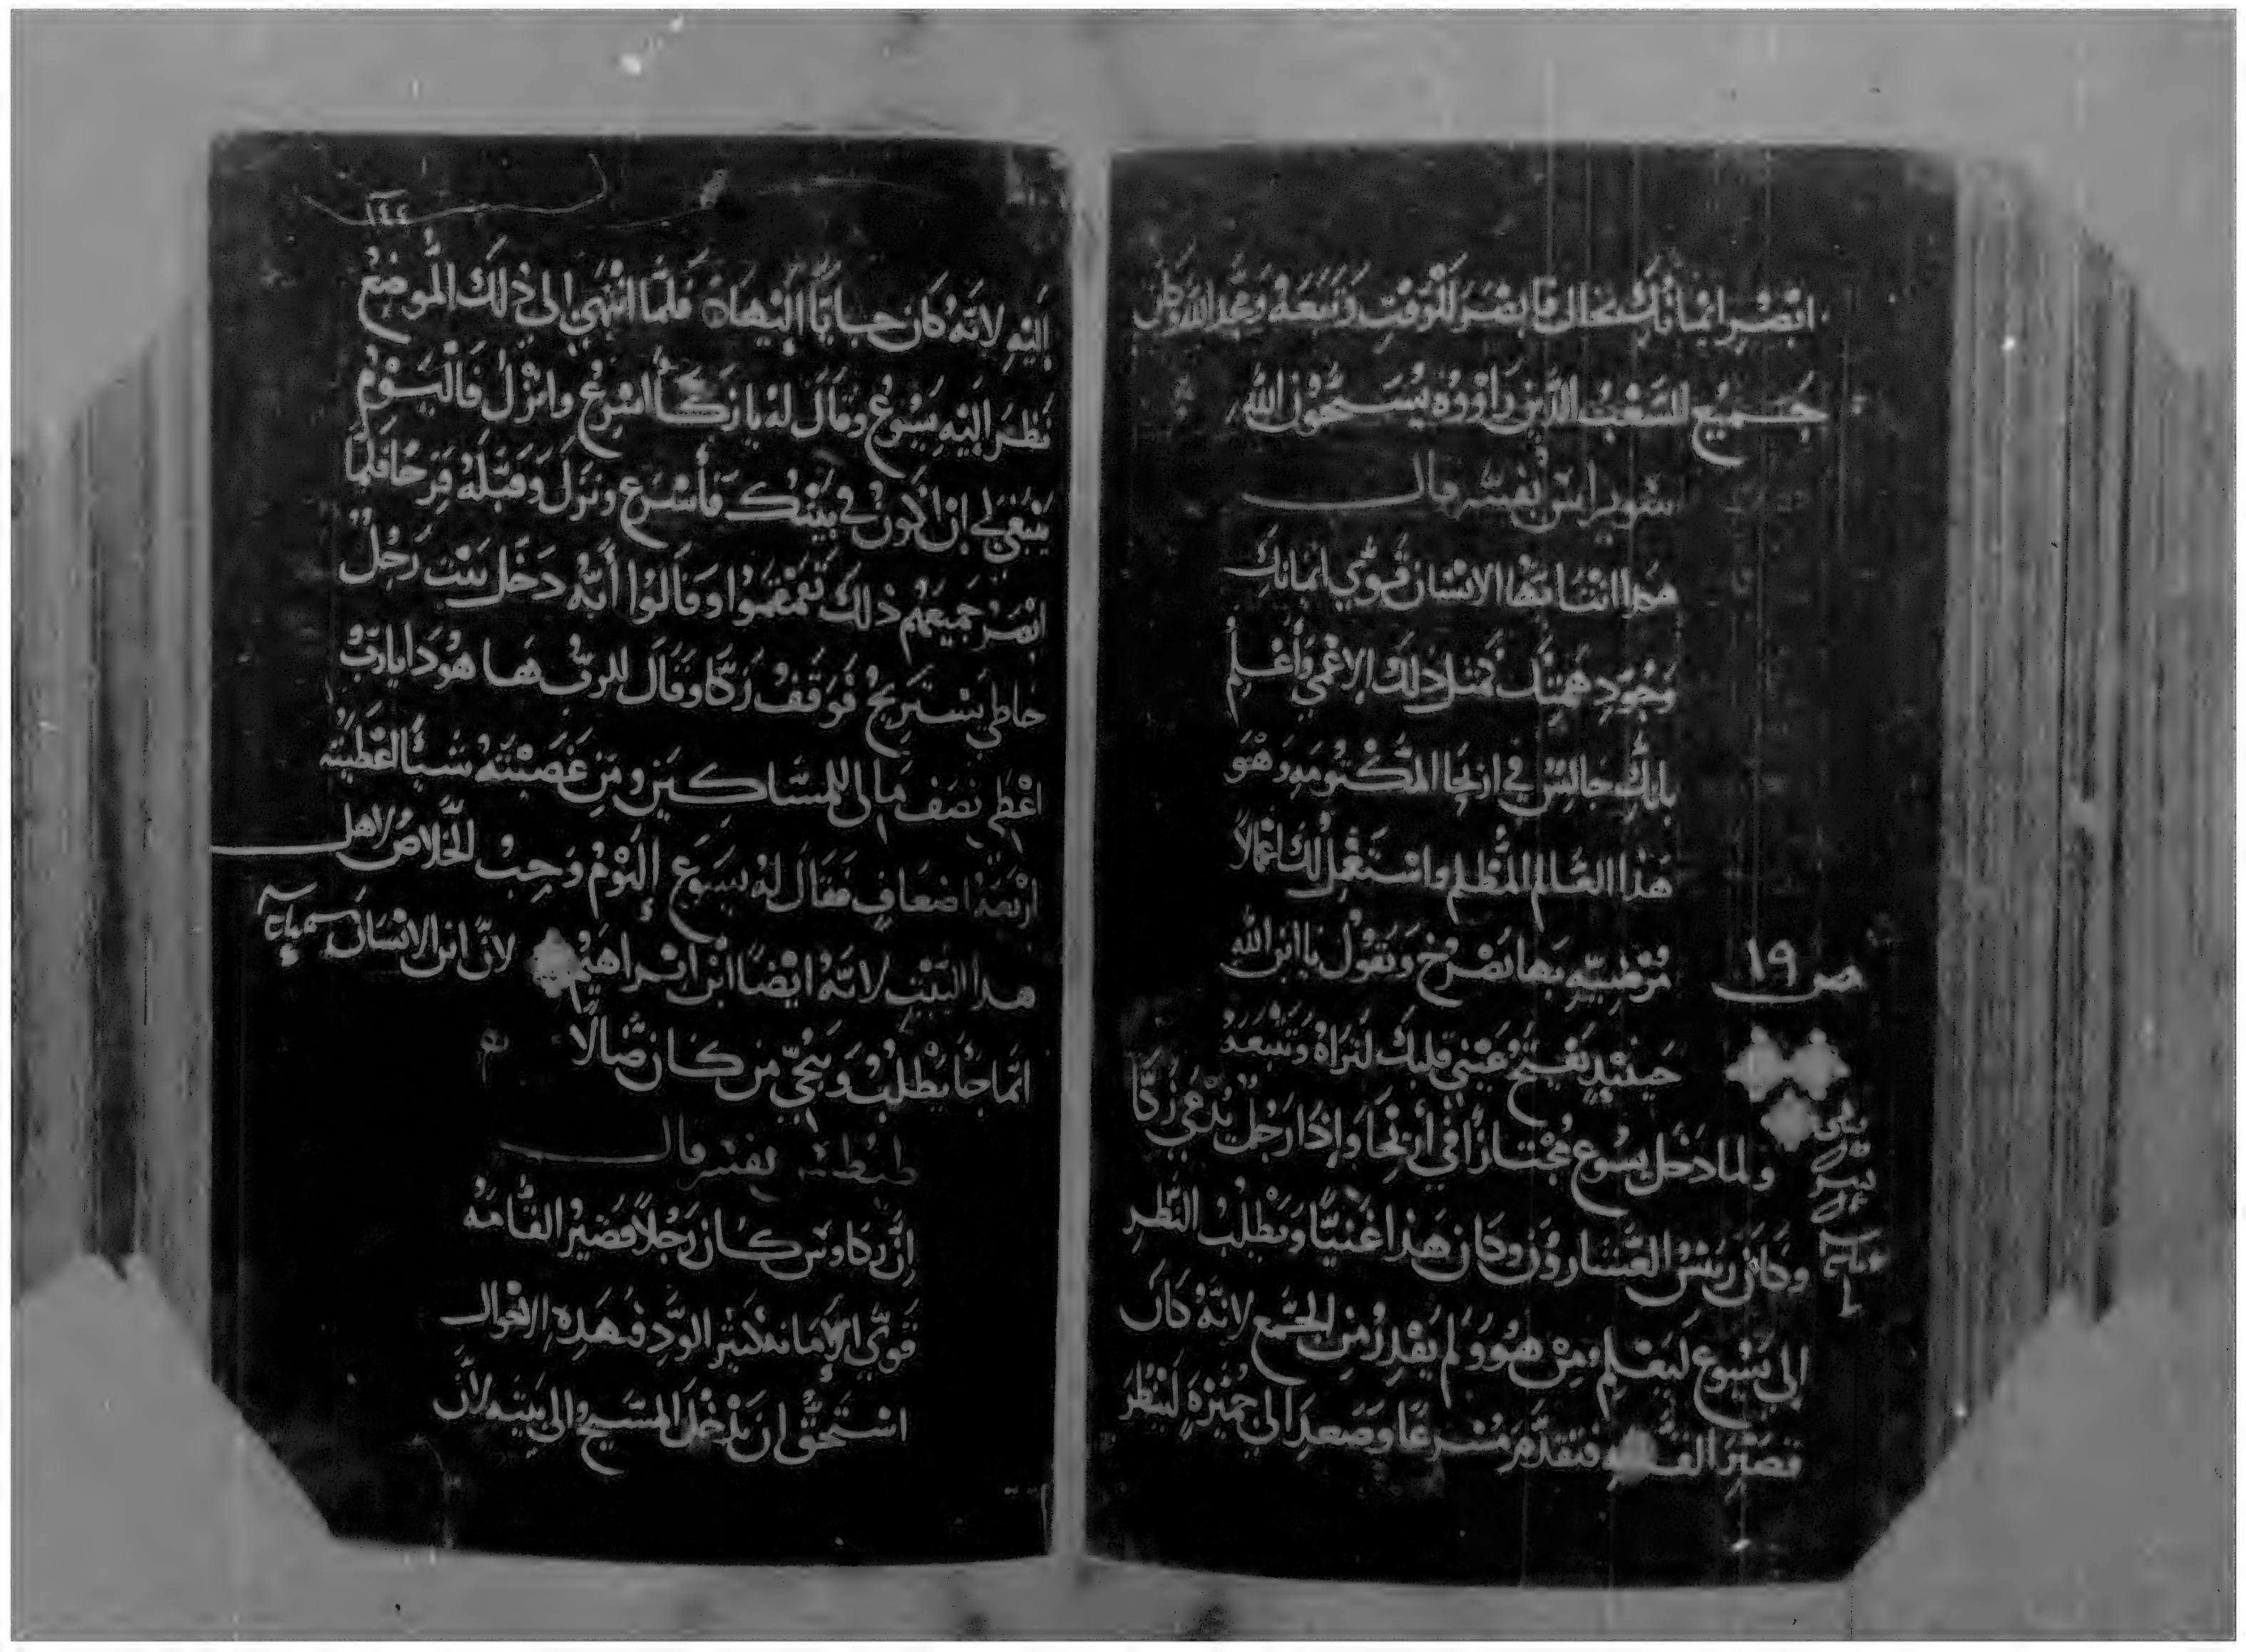 ابْصُر ايمانك نجاك فابصَر للوَقتِ وَتبعَهُ وَمجد الله وَكان
جَميع الشعْب الذين رَاوْوه يُسَبحُون الله
سويرس يفسر قال
هَذا انت ايها الانسَان قوِّي ايمانك
وَجَوِّد همتك كمثل ذلك الاعْمي وَاعْلم
بانك جَالس في اريحا المكتومه وَهْوَ
هَذا العَالم المُظلم وَاسْتَعْمل لك اعْمالاً
مُرْضيّه بهَا تصْرخ وَتقول يا ابن الله
حينيذٍ يَفْتح عَيْني قلبك لتراهُ وَتتبعَه
ص ١٩
وَلما دَخل يسُوع مُجْتازاً في أريحَا وَإذا رَجُل يُدْعَي زَكَّا
وَكَان رَييْس العَشارُون وَكان هَذا غَنيًّا وَيَطْلبُ النَّظر
إلى يَسُوع ليَعْلم مِنْ هُوَ وَلم يَقْدِرْ مِن الجَمْع لانَّهُ كَان
قصَيْرَ القَامه فتقدَّم مُسْرعًا وَصَعد الي جُميْزَهٍ ليَنْظرَ
١٤٤
إليْهِ لانَّهُ كَان جايًا إليْهاه فلمَّا انْتهي إلى ذلك المُوضعُ
نظرَ اليْه يَسُوعُ وَقال لهُ يا زَكَّا اسْرعْ وَانْزلْ فاليَوْمُ
يَنْبَغي لي ان اكون في بيتك فأسْرَع وَنزَل وَقبلهُ فرحًا فلمَّا
ابْصَرَ جَميعَهُم ذلك تقمْقمُوا وَقالوُا أنَّهُ دَخَل بَيْت رَجُل
خاطي يَسْتَريحُ فوَقفُ زَكَّا وَقال للرَّبِّ هَا هُوَذا يارَبُّ
اعْطي نصَف مَالى للمسَاكيَن وَمَن غَصَبْتهُ شيًا اعْطيتُه
ارْبَعَة اضعَافٍ فقال لهُ يسَوع اليَوْمُ وَجبُ الخَلاصُ لاهل
هذا البَيْت لانَّهُ ايْضًا ابْن ابْراهيْم لانّ ابن الانسَان
انمَّا جَا يَطْلبُ وَيُنجِّي مَن كَان ضَالاً
طيطس يفسر قال
إنَّ زكاوس كان رَجُلاً قصَيْر القَامَه
قَوِّي الامانه كثير الودِّ فبهَذِه الافعال
اسْتَحقَّ ان يَدْخُل المسَيحُ الى بَيته لأنَّ